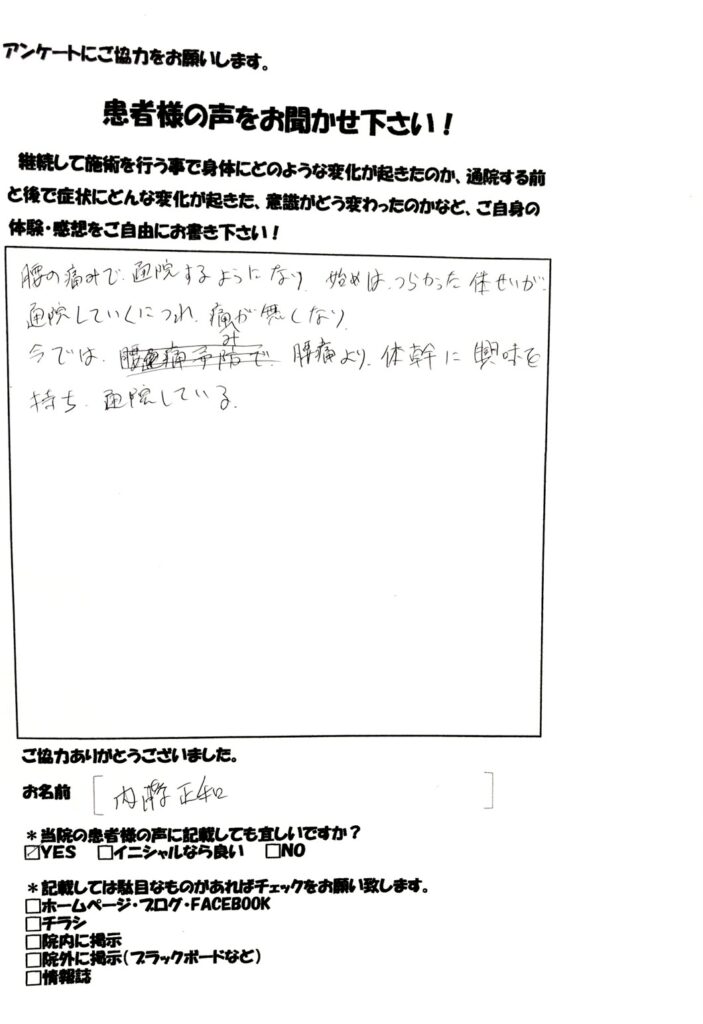 アンケートにご協力をお願いします。
患者様の声をお聞かせ下さい！
継続して施術を行う事で身体にどのような変化が起きたのか、通院する前
と後で症状にどんな変化が起きた、意識がどう変わったのかなど、ご自身の
体験・感想をご自由にお書き下さい！
腰の痛みで、通院するようになり、始めは、つらかった体せいが、
通院していくにつれ、痛みが無くなり、
今では、腰痛予防で、腰痛より、体幹に興味を
持ち、通院している。
ご協力ありがとうございました。
お名前 内藤正和
＊当院の患者様の声に記載しても宜しいですか？
☑YES □イニシャルなら良い □NO
＊記載しては駄目なものがあればチェックをお願い致します。
□ホームページ・ブログ・FACEBOOK
□チラシ
□院内に掲示
□院外に掲示（ブラックボードなど）
□情報誌